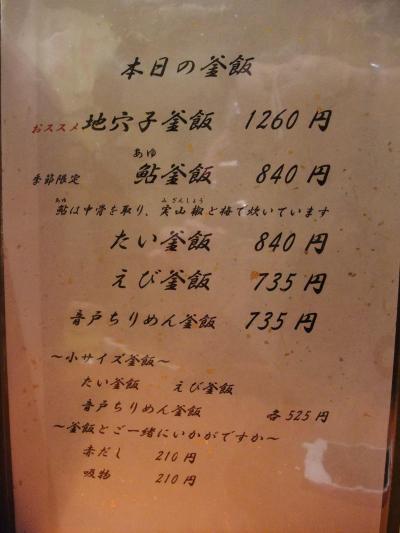 本日の釜飯
おススメ 地穴子釜飯 1260円
あゆ
季節限定 鮎釜飯 840円
あゆ みざんしょう
鮎は中骨を取り、実山椒と梅で炊いています
たい釜飯 840円
えび釜飯 735円
音戸ちりめん釜飯 735円
～小サイズ釜飯～
たい釜飯 えび釜飯
音戸ちりめん釜飯 各525円
～釜飯とご一緒にいかがですか～
赤だし 210円
吸物 210円